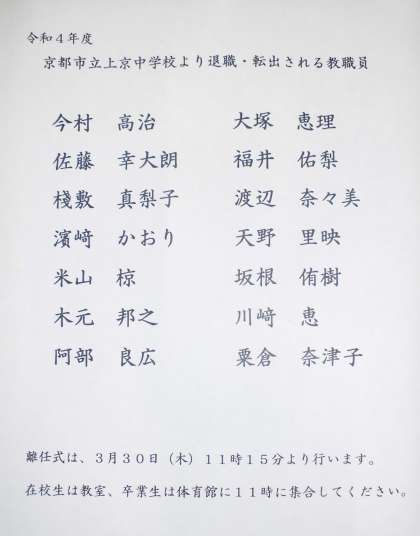 令和４年度
京都市立上京中学校より退職・転出される教職員
今村　高治　　大塚　恵理
佐藤　幸大朗　　福井　佑梨
棧敷　真梨子　　渡辺　奈々美
濵﨑　かおり　　天野　里映
米山　椋　　坂根　侑樹
木元　邦之　　川﨑　恵
阿部　良広　　粟倉　奈津子
離任式は、３月３０日（木）１１時１５分より行います。
在校生は教室、卒業生は体育館に１１時に集合してください。